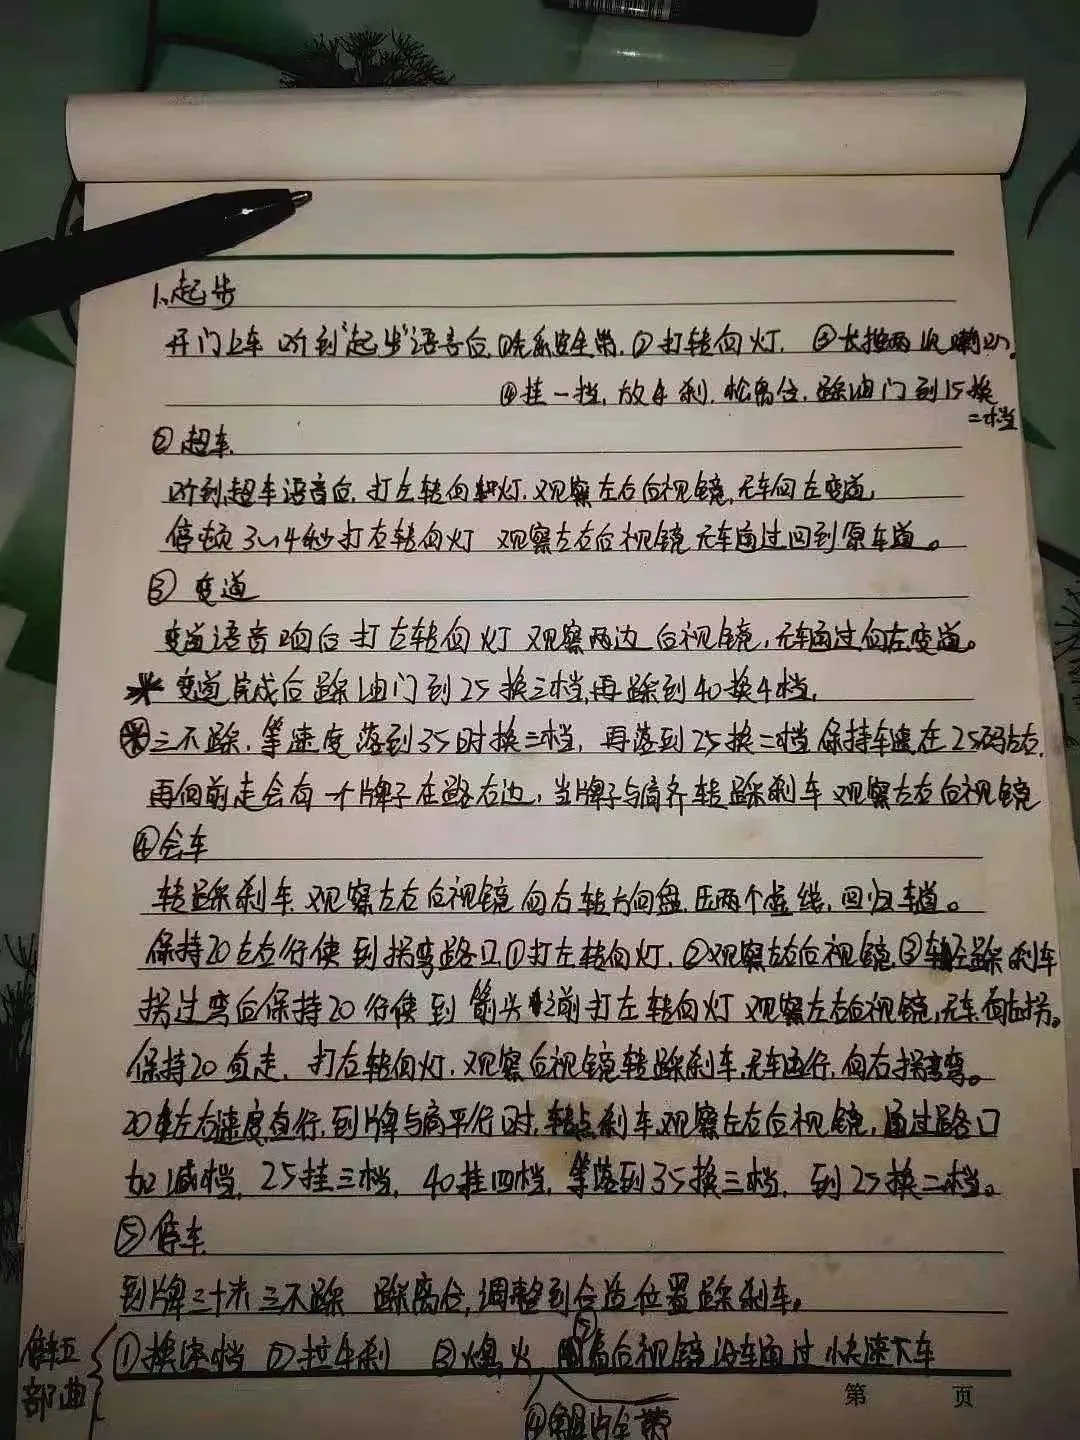 1、起步
开门上车 听到"起步"语音后,①先系安全带,②打转向灯, ③长按两次喇叭。
④挂一挡,放手刹,松离合,踩油门到15换
二档
② 超车
听到超车语音后,打左转向灯,观察左右后视镜,无车向左变道,
停顿3~4秒打右转向灯 观察左右后视镜 无车通过回到原车道。
③ 变道
变道语音响后 打左转向灯 观察两边 后视镜,无车通过向左变道。
变道完成后踩油门到25换三档,再踩到40换4档,
三不踩,等速度落到35时换三档, 再落到25换二档 保持车速在25码左右,
再向前走会有一个牌子在路右边,当牌子与肩齐轻踩刹车 观察左右后视镜
④会车
轻踩刹车 观察左右后视镜 向右转方向盘,压两个虚线,回归车道。
保持20左右行使 到拐弯路口,①打左转向灯,②观察左右后视镜,③轻踩刹车
拐过弯后保持20行使 到 箭头之前 打左转向灯 观察左右后视镜,无车向左拐。
保持20直走, 打右转向灯,观察后视镜轻踩刹车,无车通行,向右拐弯。
20左右速度直行,到牌与肩平行时,轻点刹车,观察左右后视镜,通过路口
加减档, 25挂三档, 40挂四档, 等落到35换三档, 到25换二档。
⑤停车
到牌三十米三不踩 踩离合,调整到合适位置踩刹车。
停车五部曲
①换空档 ②拉手刹 ③熄火 ⑤看后视镜没车通过 快速下车
④解安全带
第 页